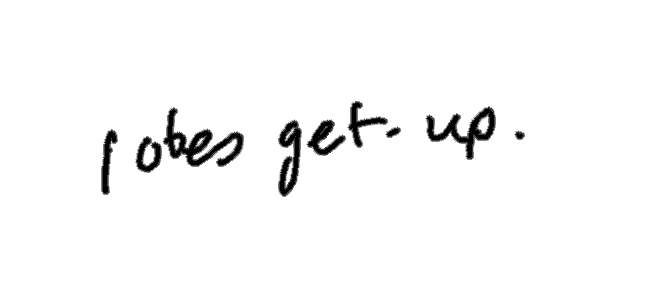 robes get. up.